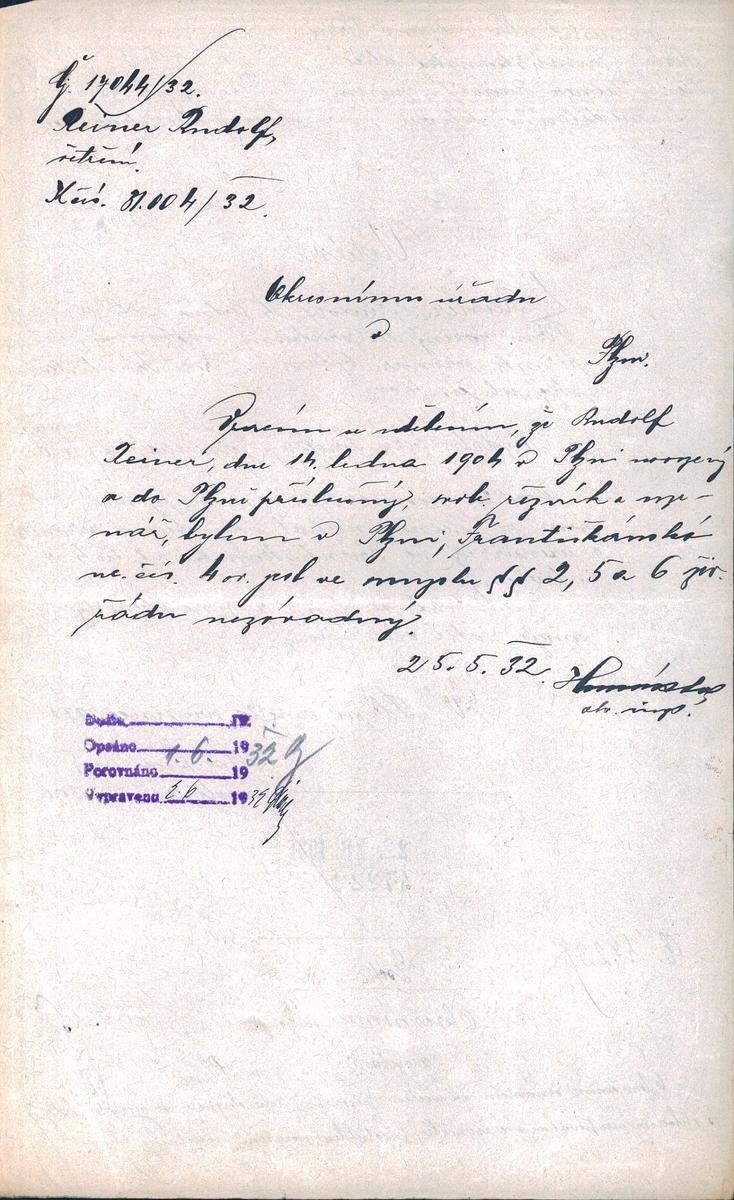 Čj. 17044/32.
Reiner Rudolf,
šetření.
K čís. 81.004/32.
Okresnímu úřadu
v
Plzni.
Vracím se sdělením, že Rudolf
Reiner, dne 14. ledna 1904 v Plzni narozený
a do Plzně příslušný, svob. řezník a uze-
nář, bytem v Plzni, Františkánská
ul. čís. 4 or. jest ve smyslu §§ 2, 5 a 6 živ.
řádu nezávadný.
25.5.32.
obv. insp.
Došlo 19
Opsáno 1.6. 1932
Porovnáno 19
Vypraveno 2.6 1932